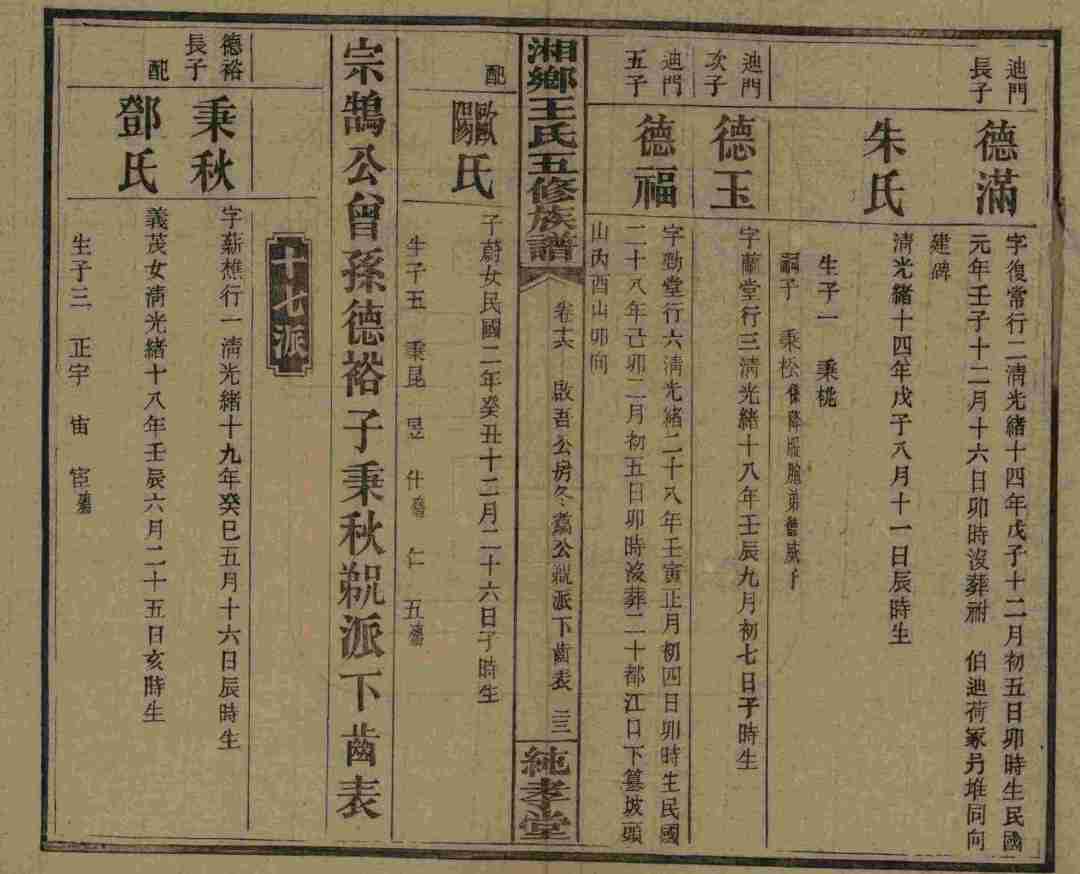 迪門長子
德滿
字復常行二清光緒十四年戊子十二月初五日卯時生民國
元年壬子十二月十六日卯時沒葬祔 伯迪荷冢另堆同向
建碑
朱氏
清光緒十四年戊子八月十一日辰時生
生子一 秉桃
嗣子 秉松係降服胞弟 子
迪門次子
德玉
字蘭堂行三清光緒十八年壬辰九月初七日子時生
迪門五子
德福
字勁堂行六清光緒二十八年壬寅正月初四日卯時生民國
二十八年己卯二月初五日卯時沒葬二十都江口下篡坡頭
山丙酉山卯向
湘鄉王氏五修族譜
卷十六 啟吾公房冬 公 派下齒表 二三
純孝堂
配
歐陽氏
子蔚女民國二年癸丑十二月二十六日子時生
生子五 秉昆 昱 什殤 仁 五殤
宗鵠公曾孫德裕子秉秋 派下齒表
十七派
德裕長子
秉秋
字薪樵行一清光緒十九年癸巳五月十六日辰時生
配
鄧氏
義茂女清光緒十八年壬辰六月二十五日亥時生
生子三 正宇 宙 宦殤